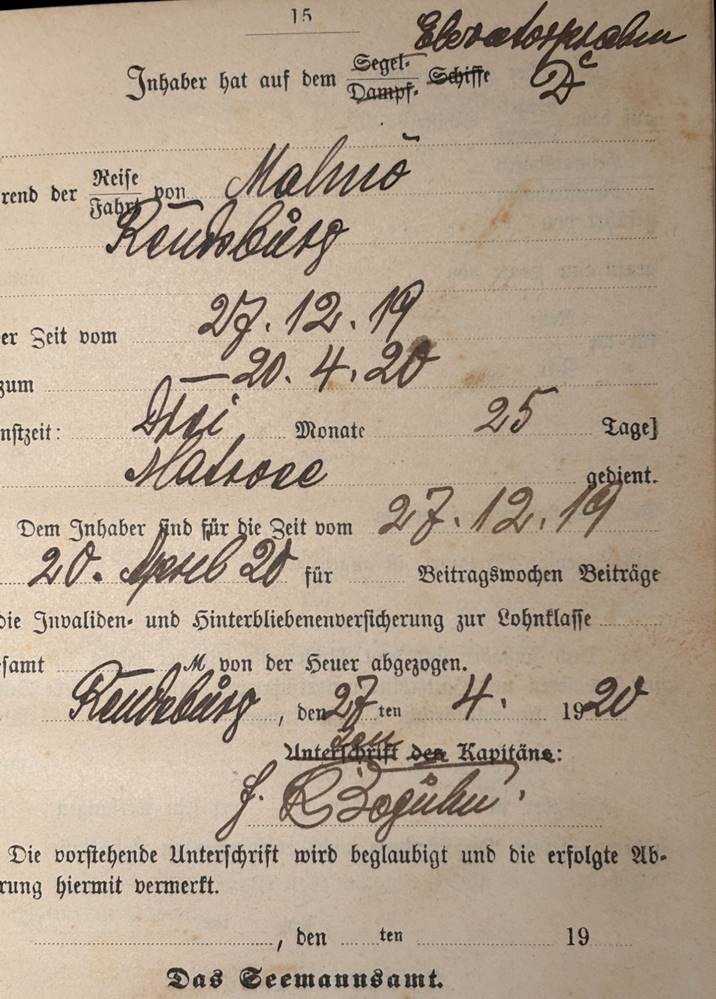 15
Elevatorprahm
Inhaber hat auf dem Segel- Dampf- Schiffe
rend der Reise Fahrt von Malmö
Rendsburg
er Zeit vom 27. 12. 19
zum — 20. 4. 20
nstzeit: Drei Monate 25 Tage]
Matrose gedient.
Dem Inhaber sind für die Zeit vom 27. 12. 19
20. April 20 für Beitragswochen Beiträge
die Invaliden- und Hinterbliebenenversicherung zur Lohnklasse
samt M von der Heuer abgezogen.
Rendsburg, den 27 ten 4. 1920
Unterschrift des Kapitäns:
Die vorstehende Unterschrift wird beglaubigt und die erfolgte Ab-
rung hiermit vermerkt.
, den ten 19
Das Seemannsamt.